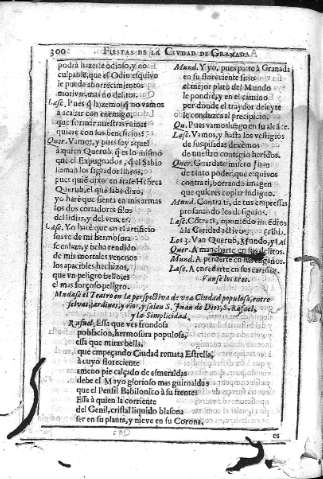 300 FIESTAS DE LA CIUDAD DE GRANADA
podrá hazerle odioso, y no
culpable, que el Odio esquivo
le puede aborrecimientos
motivar, mas no delitos.
Lasc. Pues q hazemos q no vamos
a acabar con enemigo,
que formar nuestras ruinas
quiere con los beneficios?
Quer. Vamos, y pues soy aquel
à quien Querub, q es lo mismo
que el Expugnador, q el Sabio
llaman los sagrados libros,
Querub, el que sabe
yo haré que sienta en
los dos cortadores filos
del lidiar, y del vencer.
Lasc. Yo haré que en el artificio
suave de mi hermosura
se enlaze, y beba rendido
de mis mortales venenos
los apacibles hechizos,
que un peligro bello es
el mas forçoso peligro.
Mund. Y yo, pues parto à Granada
en su floreciente sitio
el mejor plato del Mundo
le pondré, y en el camino
por donde el traydor deleyte
le conduzca al precipicio.
Qu. Pues vamos luego en su alcãce.
Lasc. Vamos, y hasta los vestigios
de sus pisadas dexemos
de nuestro contagio heridos.
Quer. Guardate misero
de tanto poder, que
contra ti, borrando imagen
que quieres copiar indigno.
Mund. Contra ti, de tus empressas
profanando los designios.
Lasc. Contra ti,
à la Caridad
Los 3. Van Querub, Mundo, y
Mund. A perderte en
Lasc. A encederte en sus
Vanse los tres.
Mudase el Teatro en la perspectiva de una Ciudad populosa, entre
selvas, jardines, y rios, y salen S. Juan de Dios, S. Rafael,
y la Simplicidad.
Rafael. Essa que ves frondosa
poblacion, hermosura populosa,
essa que miras bella,
que empeçando Ciudad remata Estrella,
à cuyo floreciente
ameno pie calçado de esmeraldas
debe el Mayo glorioso mas guirnaldas
que el Pensil Babilonico à su frente:
Essa à quien la corriente
del Genil, cristal liquido blasona
ser en su planta, y nieve en su Corona.